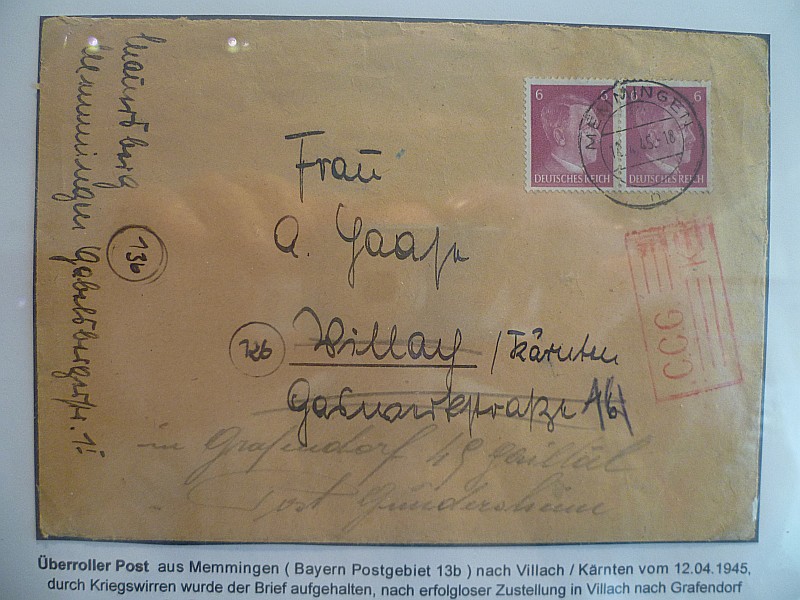 6 6 6
DEUTSCHES REICH DEUTSCHES REICH
MEMMINGEN
.4.45.-18
Frau
A. Haase
12b
Villach / Kärnten
Gaswerkstraße
in Grafendorf 49 Gailtal
Post Gundersheim
13b
Memmingen Gabelsbergerstr. 1
C.C.G.
Überroller Post aus Memmingen ( Bayern Postgebiet 13b ) nach Villach / Kärnten vom 12.04.1945,
durch Kriegswirren wurde der Brief aufgehalten, nach erfolgloser Zustellung in Villach nach Grafendorf